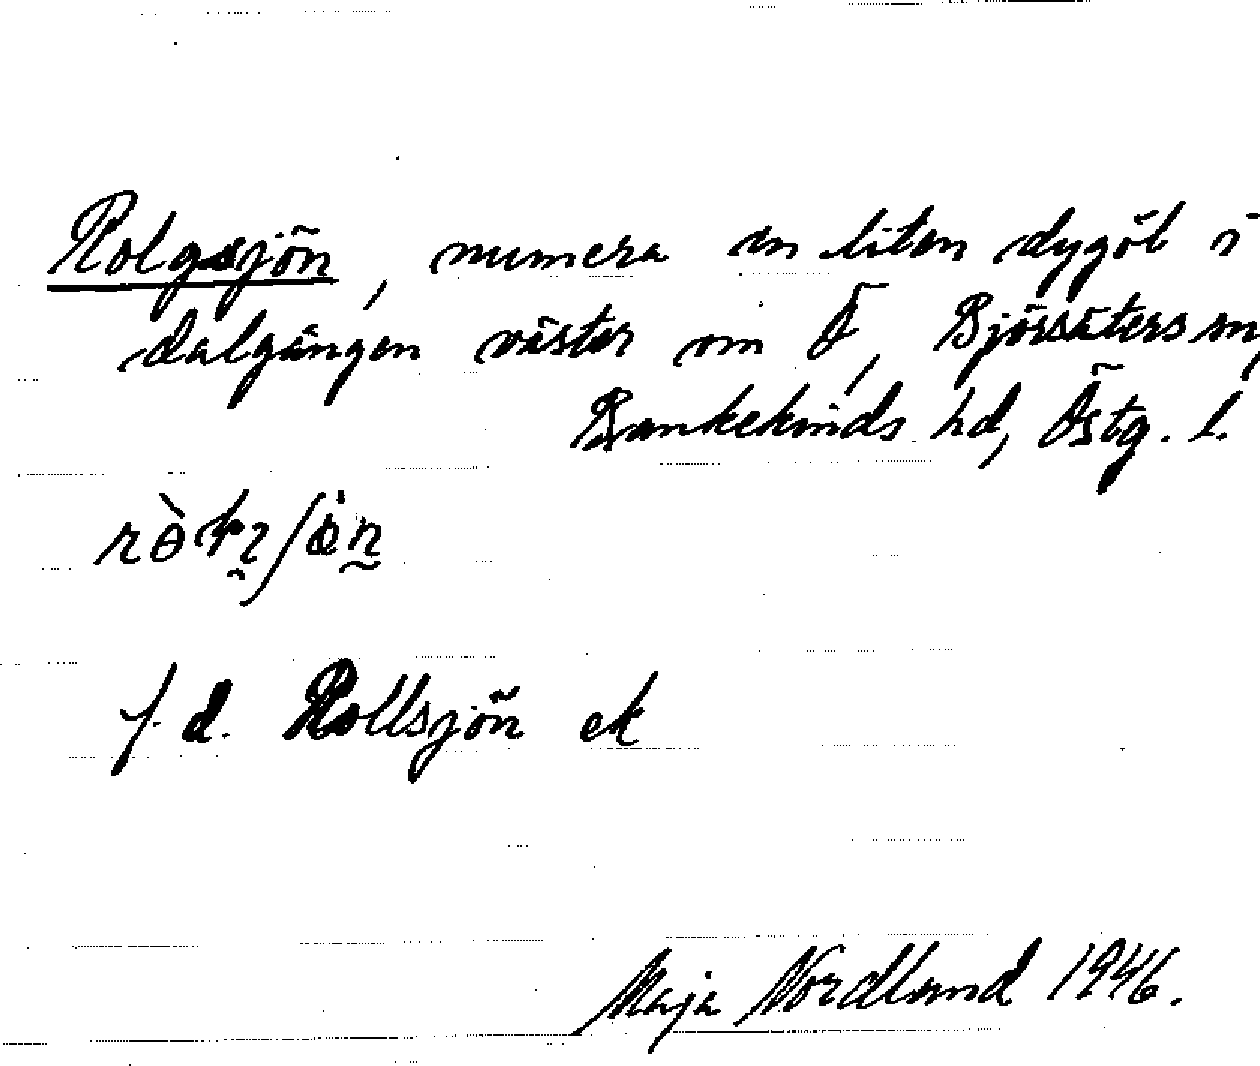 Rolgsjön, numera en liten dygöl i
dalgången väster om Å, Björsäters sn,
Bankekinds hd, Östg. l.
f.d. Rollsjön ek
Maja Nordlund 1946.